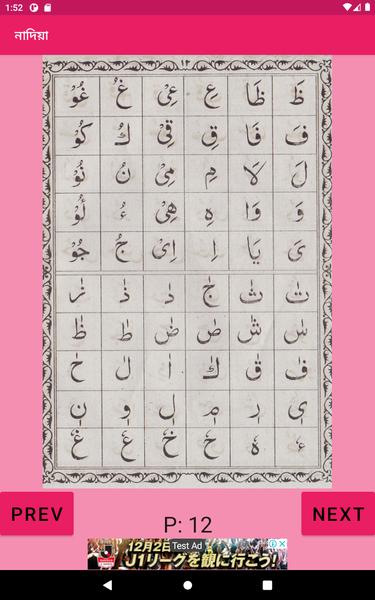 1:52
নাদিয়া
ظَ ظَا عِ عِىْ غُ غُوْ
فَ فَا قِ قِىْ كُ كُوْ
لَ لَا مِ مِىْ نُ نُوْ
وَ وَا هِ هِىْ ءُ
یَ یَا اِ اِىْ جُ جُوْ
تٰ ثٰ جٰ دٰ ذٰ زٰ
سٰ شٰ صٰ ضٰ طٰ ظٰ
فٰ قٰ كٰ اٰ لٰ حٰ
ىٖ رٖ مٖ لٖ وٖ نٖ
ءٗ هٗ حٗ خٗ عٗ غٗ
PREV
P: 12
NEXT
12月2日
Test Ad
J1リーグを観に行こう!